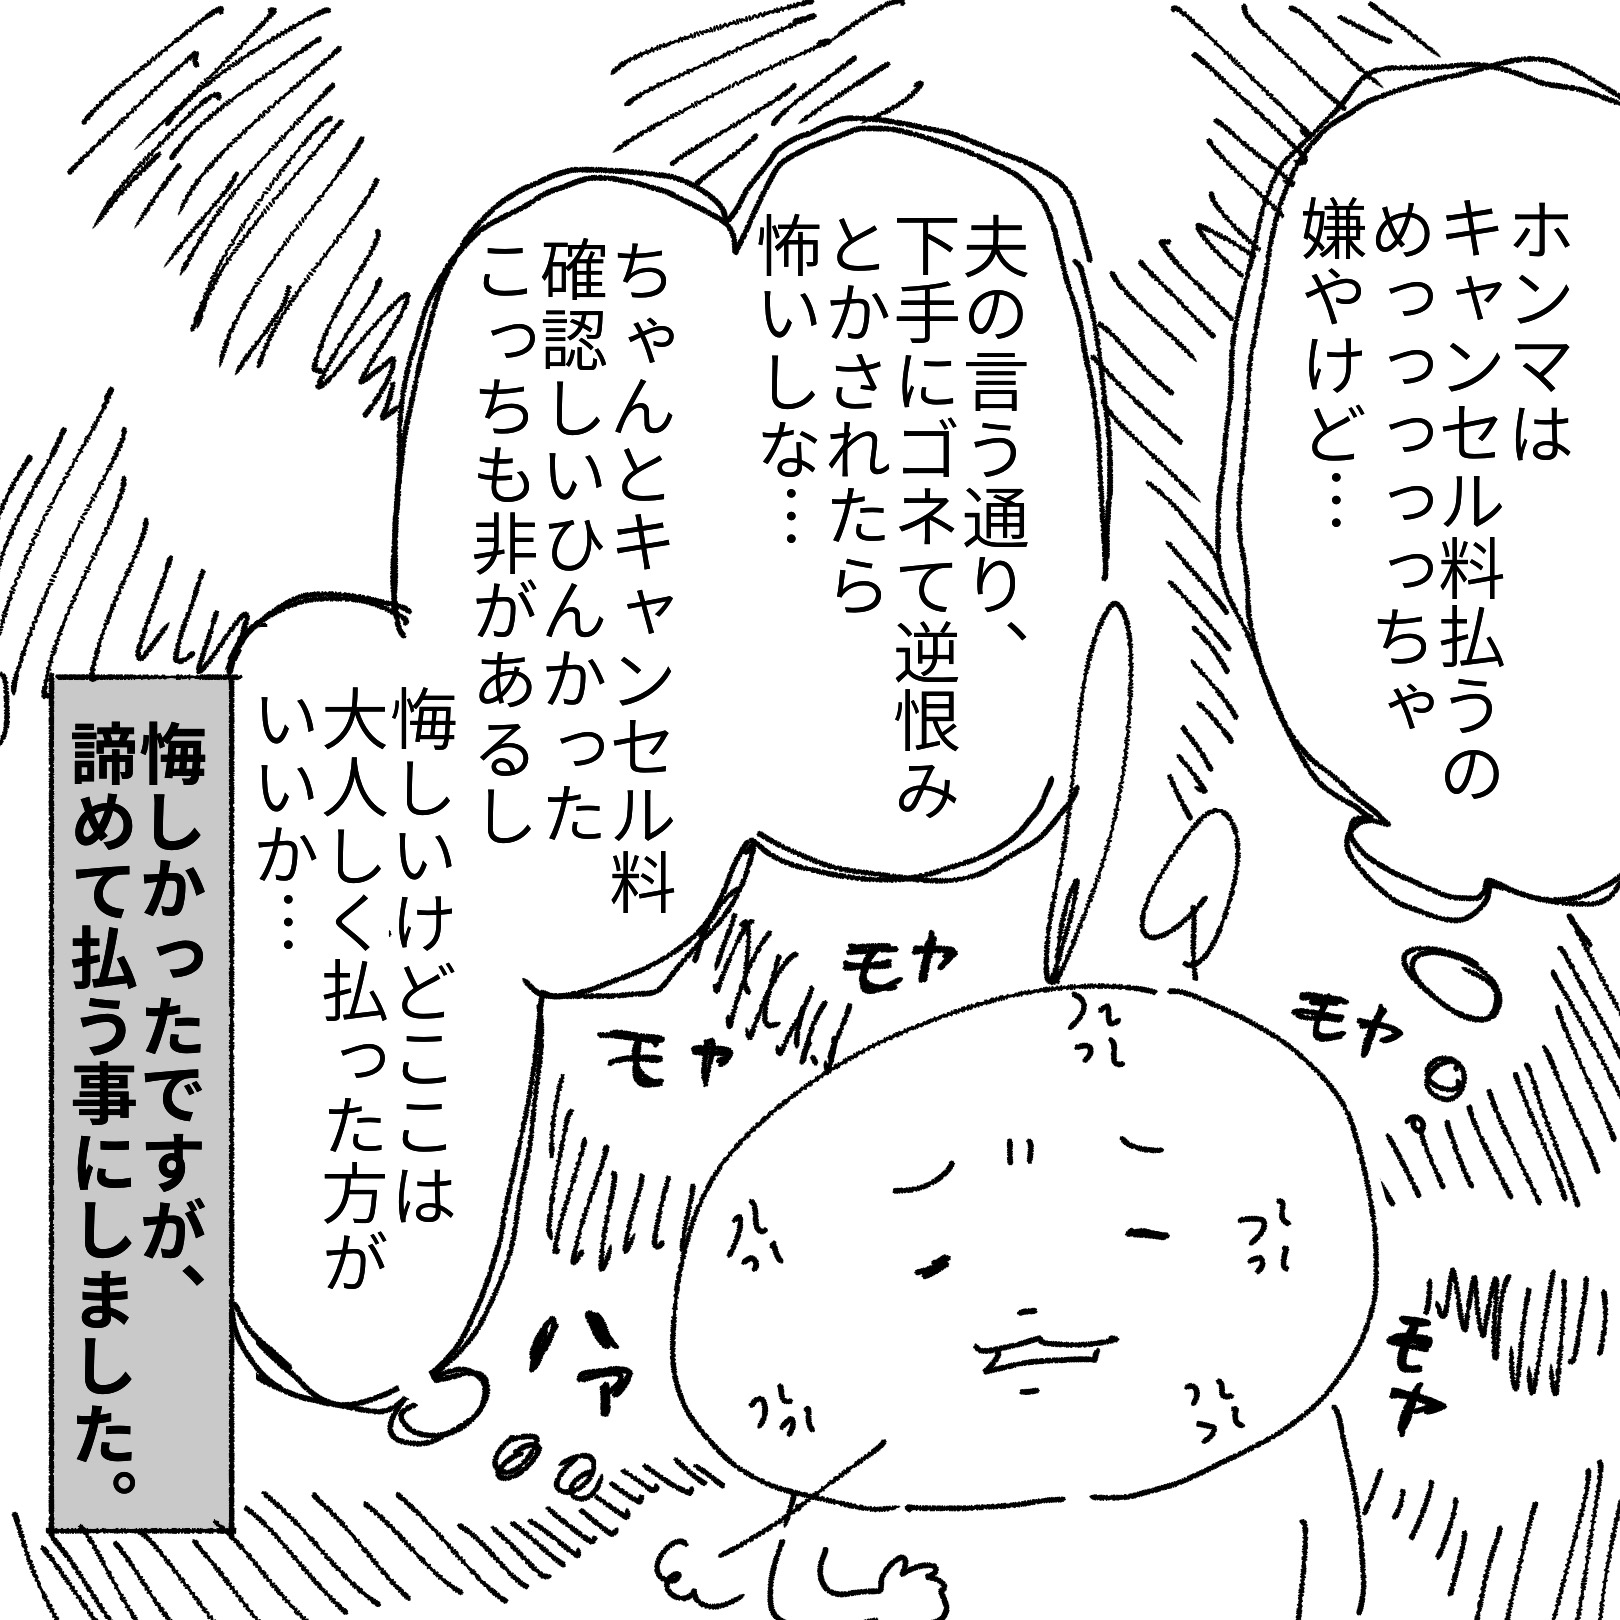 ホンマは
キャンセル料払うの
めっっっっっちゃ
嫌やけど…
夫の言う通り、
下手にゴネて逆恨み
とかされたら
怖いしな…
ちゃんとキャンセル料
確認しいひんかった
こっちも非があるし
悔しいけどここは
大人しく払った方が
いいか…
モヤ
モヤ
モヤ
モヤ
ハァ
悔しかったですが、
諦めて払う事にしました。